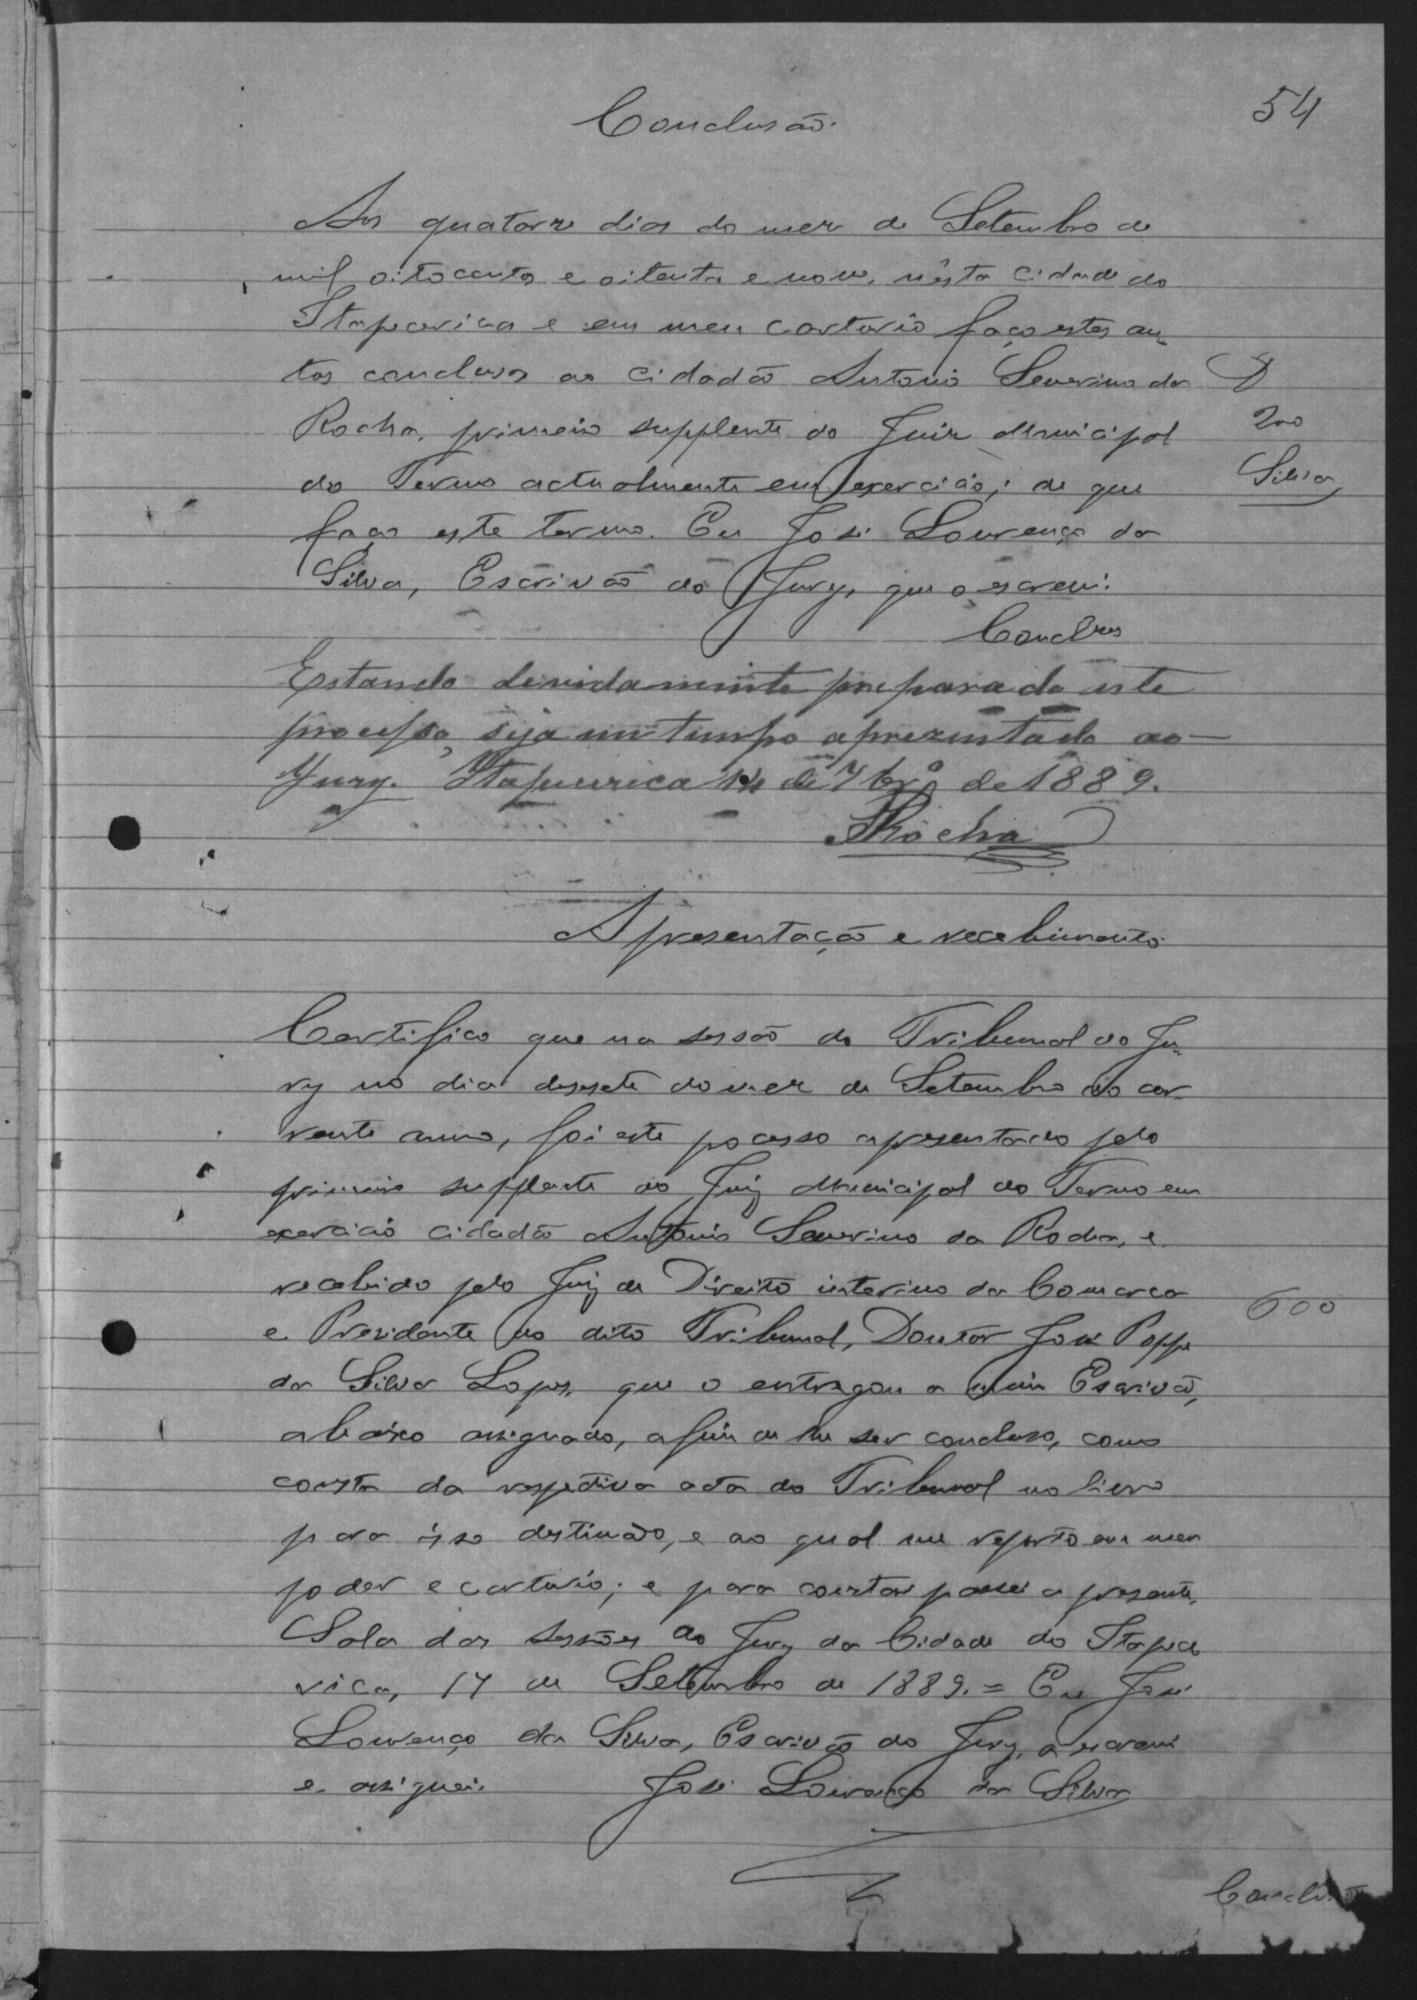 54
Conclusão.
Aos quatorze dias do mez de Setembro de
mil oitocentos e oitenta e nove, nésta cidade do
Itapecerica e em meu cartorio faço estes au-
tos conclusos ao cidadão Antonio Severino da
Rocha, primeiro supplente do Juiz Municipal
do Termo actualmente em exercicio; de que
faço este termo. Eu José Lourenço da
Silva, Escrivão do Jury, que o escrevi.
200
Silva
Concl.os
Estando devidamente preparado este
processo, seja em tempo aprezentado ao
Jury. Itapecerica 14 de 7brº de 1889.
Rocha
Apresentação e recebimento
Certifico que na sessão do Tribunal do Ju-
ry no dia desesete do mez de Setembro do cor-
rente anno, foi este pocesso apresentado pelo
primeiro supplente do Juiz Municipal do Termo em
exercicio cidadão Antonio Severino da Rocha, e
recebido pelo Juiz de Direito interino da Comarca
600
e Presidente do dito Tribunal, Doutor José Poppe
da Silva Lopes, que o entregou a mim Escrivão,
abaixo assignado, afim de lhe ser concluso, como
consta da respectiva acta do Tribunal no livro
para isso destinado, e ao qual me reporto em meu
poder e cartorio; e para constar passei a presente.
Sala das sessões do Jury da Cidade do Itapece-
rica, 17 de Setembro de 1889. = Eu José
Lourenço da Silva, Escrivão do Jury, a escrevi
e assignei. José Lourenço da Silva
Conclusão